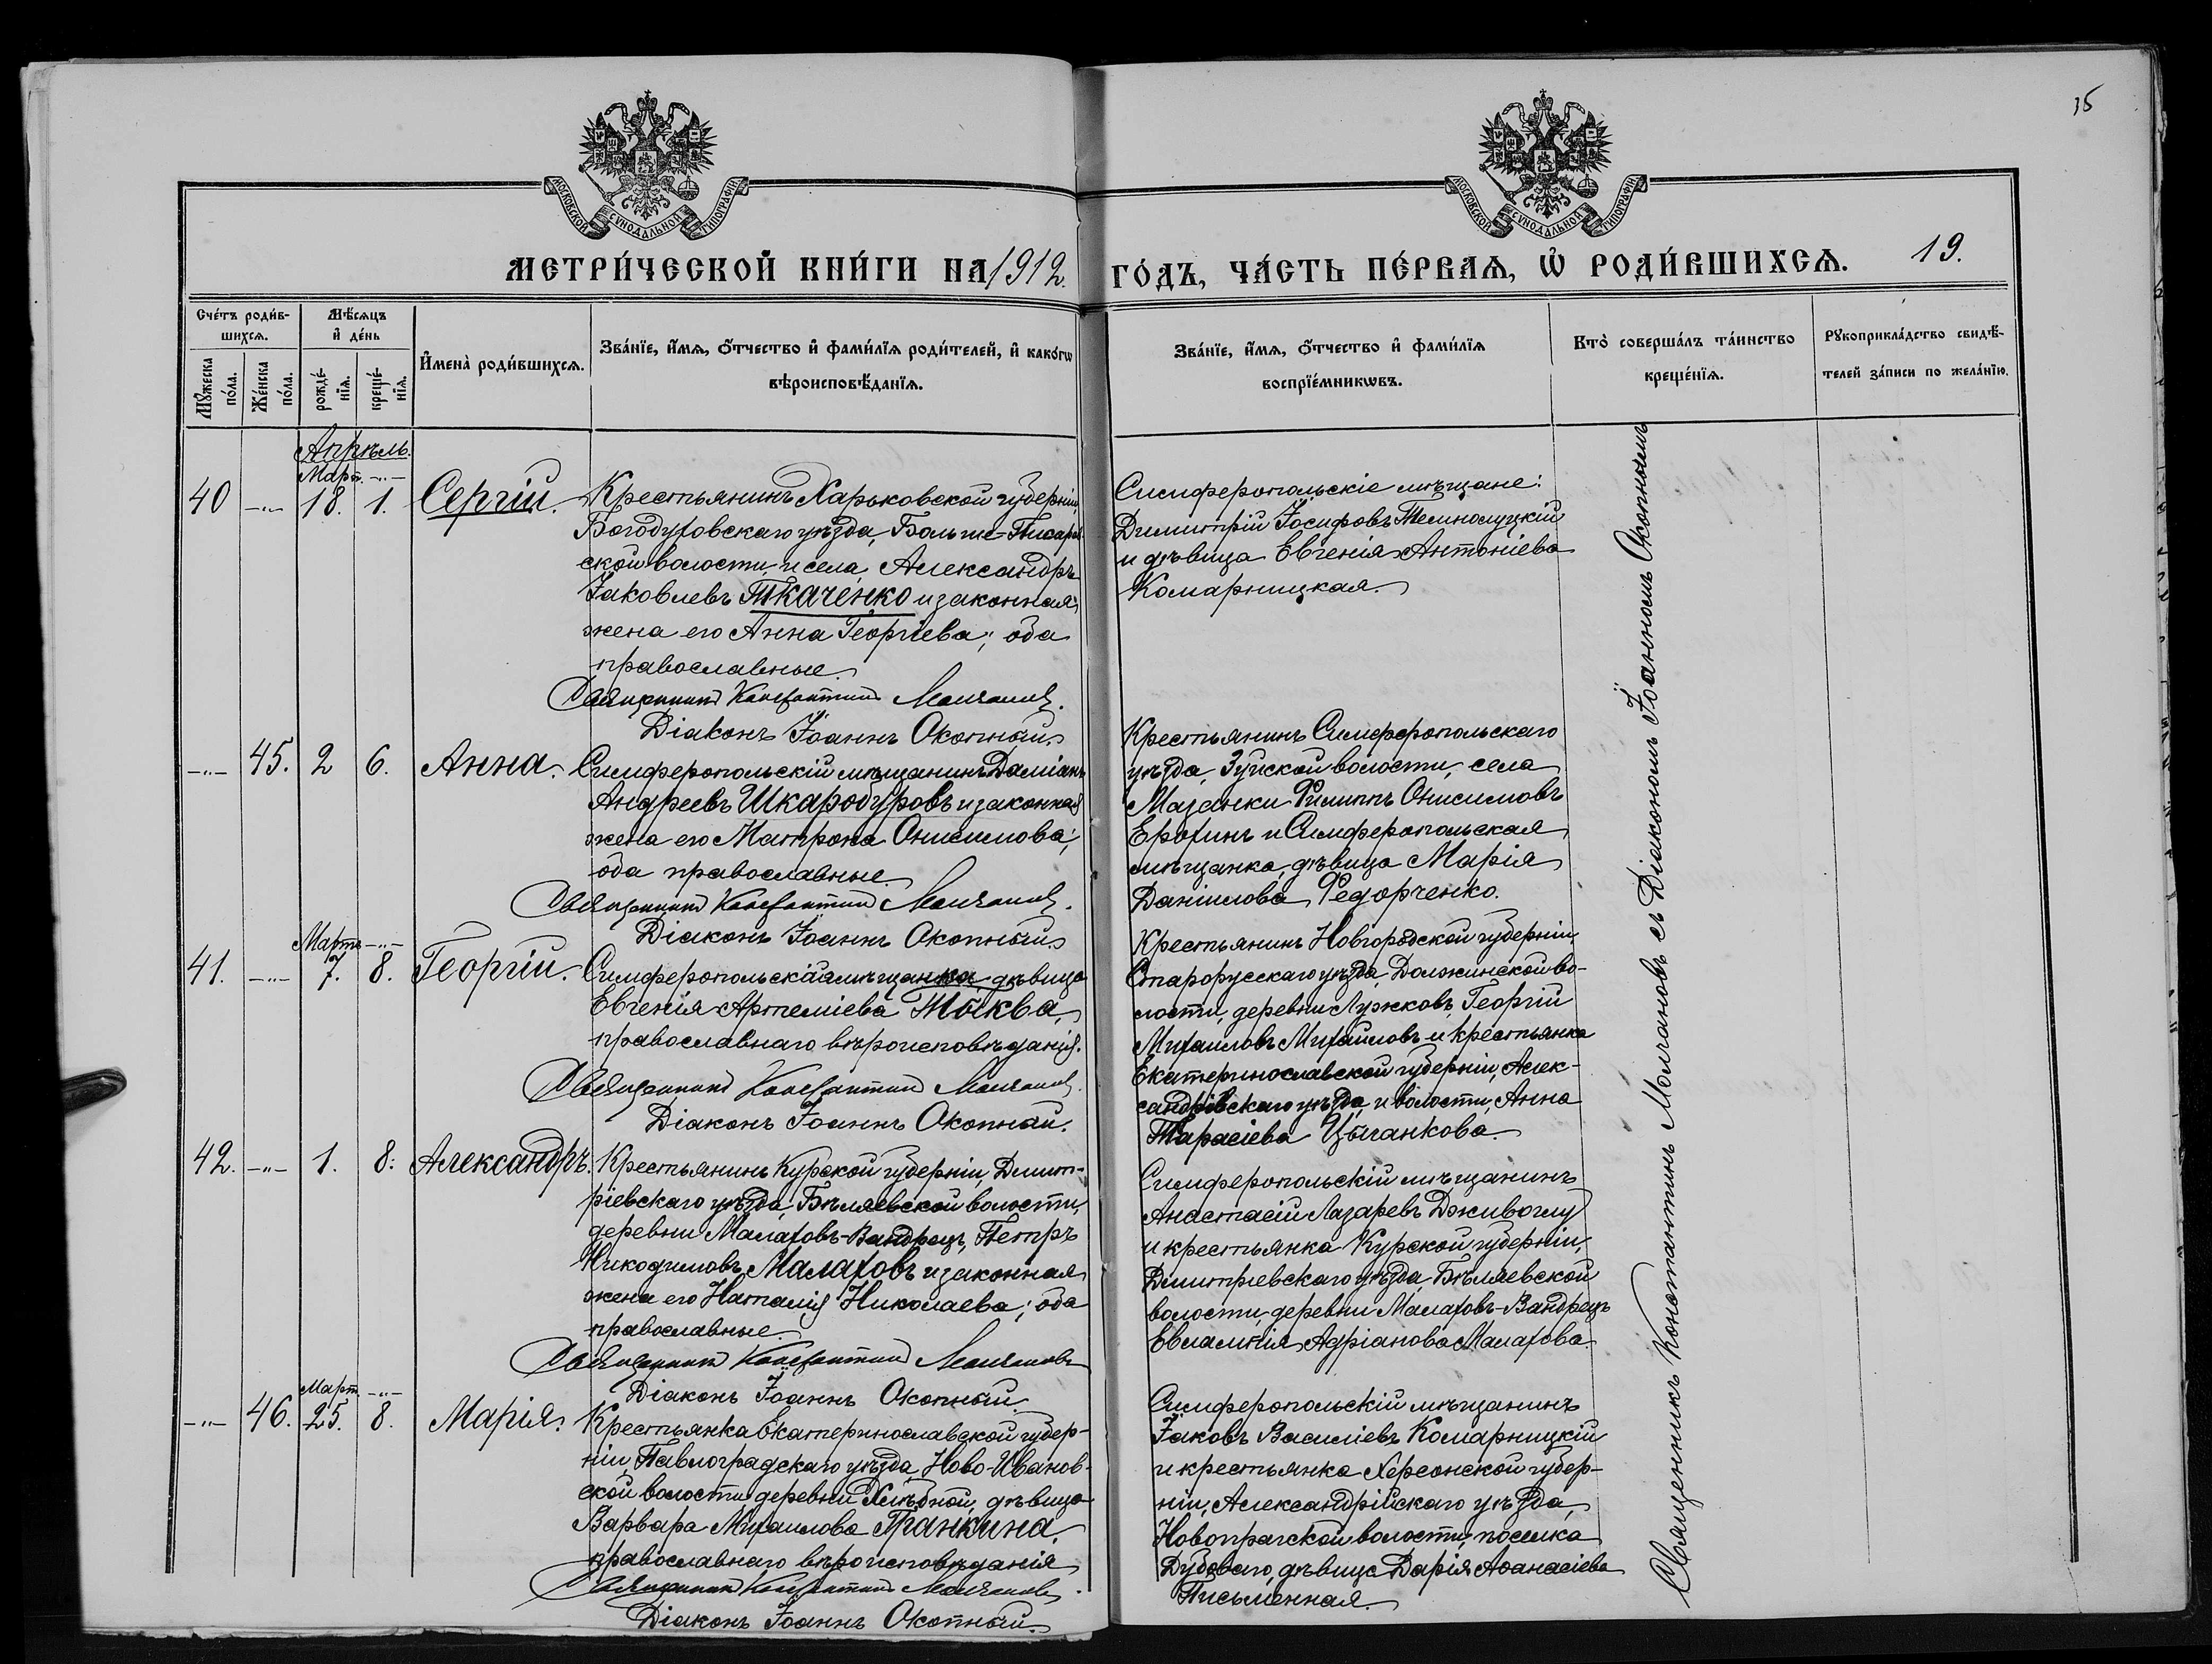 МОСКОВСКОЙ СѴНОДАЛЬНОЙ ТИПОГРАФІИ
МОСКОВСКОЙ СѴНОДАЛЬНОЙ ТИПОГРАФІИ
35
МЕТРИ́ЧЕСКОЙ КНИ́ГИ НА 1912.
ГО́ДЪ, ЧА́СТЬ ПЕ́РВАѦ, Ѡ҆ РОДИ́ВШИХСѦ.
19.
Сче́тъ роди́в-
шихсѧ.
Мѣ́сѧцъ
и҆ де́нь
Мꙋ́жеска по́ла.
Же́нска по́ла.
рожде́-нїѧ.
креще́-нїѧ.
И҆мена̀ роди́вшихсѧ.
Зва́нїе, и҆́мѧ, ѻ҆́тчество и҆ фами́лїѧ роди́телей, и҆ како́гѡ
вѣроисповѣ́данїѧ.
Зва́нїе, и҆́мѧ, ѻ҆́тчество и҆ фами́лїѧ
воспрїе́мникѡвъ.
Кто̀ соверша́лъ та́инство
креще́нїѧ.
Рꙋкоприкла́дство свидѣ́-
телей за́писи по жела́нїю.
Апрѣль.
Март. -"-
40 -"- 18. 1. Сергій. Крестьянинъ Харьковской губерніи,
Богодуховскаго уѣзда, Больше-Писарев
ской волости и села, Александръ
Іаковлевъ Ткаченко и законная
жена его Анна Георгіева; оба
православные.
Священникъ Константинъ Молчановъ.
Діаконъ Іоаннъ Окопный.
Симферопольскіе мѣщане:
Димитрій Іосифовъ Темнолуцкій
и дѣвица Евгенія Антоніева
Комарницкая.
-"- 45. 2 6. Анна. Симферопольскій мѣщанинъ Даміанъ
Андреевъ Шкаробуровъ и законная
жена его Матрона Онисимова;
оба православные.
Священникъ Константинъ Молчановъ.
Діаконъ Іоаннъ Окопный.
Крестьянинъ Симферопольскаго
уѣзда, Зуйской волости, села
Мазанки Филиппъ Онисимовъ
Ерохинъ и Симферопольская
мѣщанка, дѣвица Марія
Даніилова Федорченко.
Мартъ -"-
41. -"- 7. 8. Георгій. Симферопольская мѣщанка дѣвица
Евгенія Артеміева Тыква,
православнаго вѣроисповѣданія.
Священникъ Константинъ Молчановъ.
Діаконъ Іоаннъ Окопный.
Крестьянинъ Новгородской губерніи,
Старорусскаго уѣзда, Должинской во-
лости, деревни Лужковъ, Георгій
Михаиловъ Михайловъ и крестьянка
Екатеринославской губерніи, Алек-
сандровскаго уѣзда и волости, Анна
Тарасіева Цыганкова.
42. -"- 1. 8. Александръ. Крестьянинъ Курской губерніи, Дмит-
ріевскаго уѣзда, Бѣляевской волости,
деревни Малаховъ-Вандрецъ, Петръ
Никодимовъ Малаховъ и законная
жена его Наталія Николаева; оба
православные.
Священникъ Константинъ Молчановъ
Діаконъ Іоаннъ Окопный.
Симферопольскій мѣщанинъ
Анастасій Лазаревъ Дживоглу
и крестьянка Курской губерніи,
Дмитріевскаго уѣзда, Бѣляевской
волости, деревни Малаховъ-Вандрецъ
Евлампія Адріанова Малахова.
Март. -"-
-"- 46. 25. 8. Марія. Крестьянка Екатеринославской губер-
ніи, Павлоградскаго уѣзда, Ново-Иванов-
ской волости деревни Хлѣбной, дѣвица
Варвара Михаилова Гранкина,
православнаго вѣроисповѣданія
Священникъ Константинъ Молчановъ.
Діаконъ Іоаннъ Окопный.
Симферопольскій мѣщанинъ
Іаковъ Василіевъ Комарницкій
и крестьянка Херсонской губер-
ніи, Александрійскаго уѣзда,
Новопрагской волости, поселка
Дубоваго, дѣвица Дарія Аѳанасіева
Письменная.
Священникъ Константинъ Молчановъ съ Діакономъ Іоанномъ Окопнымъ